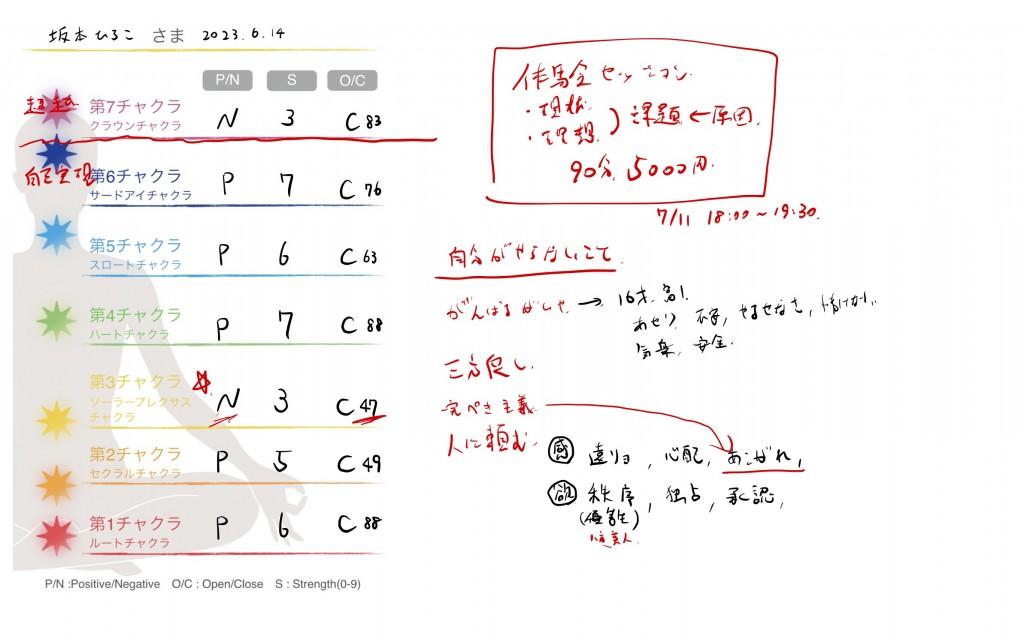 坂本ひろこ さま 2023.6.14
P/N S O/C
超越
第7チャクラ
クラウンチャクラ
N 3 C 83
自己実現
第6チャクラ
サードアイチャクラ
P 7 C 76
第5チャクラ
スロートチャクラ
P 6 C 63
第4チャクラ
ハートチャクラ
P 7 C 88
第3チャクラ
ソーラープレクサス
チャクラ
N 3 C 47
第2チャクラ
セクラルチャクラ
P 5 C 49
第1チャクラ
ルートチャクラ
P 6 C 88
P/N :Positive/Negative O/C : Open/Close S : Strength(0-9)
作馬会セッション
・現状
・理想 ) 課題 ← 原因
90分 5000円
7/11 18:00～19:30
自分がやりたいこと
がんばる →16才
あせり、不安, やるせなさ,
気楽, 安全
三方良し
完ぺき主義
人に頼む
感 遠りょ, 心配, あこがれ,
欲 秩序, 独占, 承認,
(優等生)
八方美人